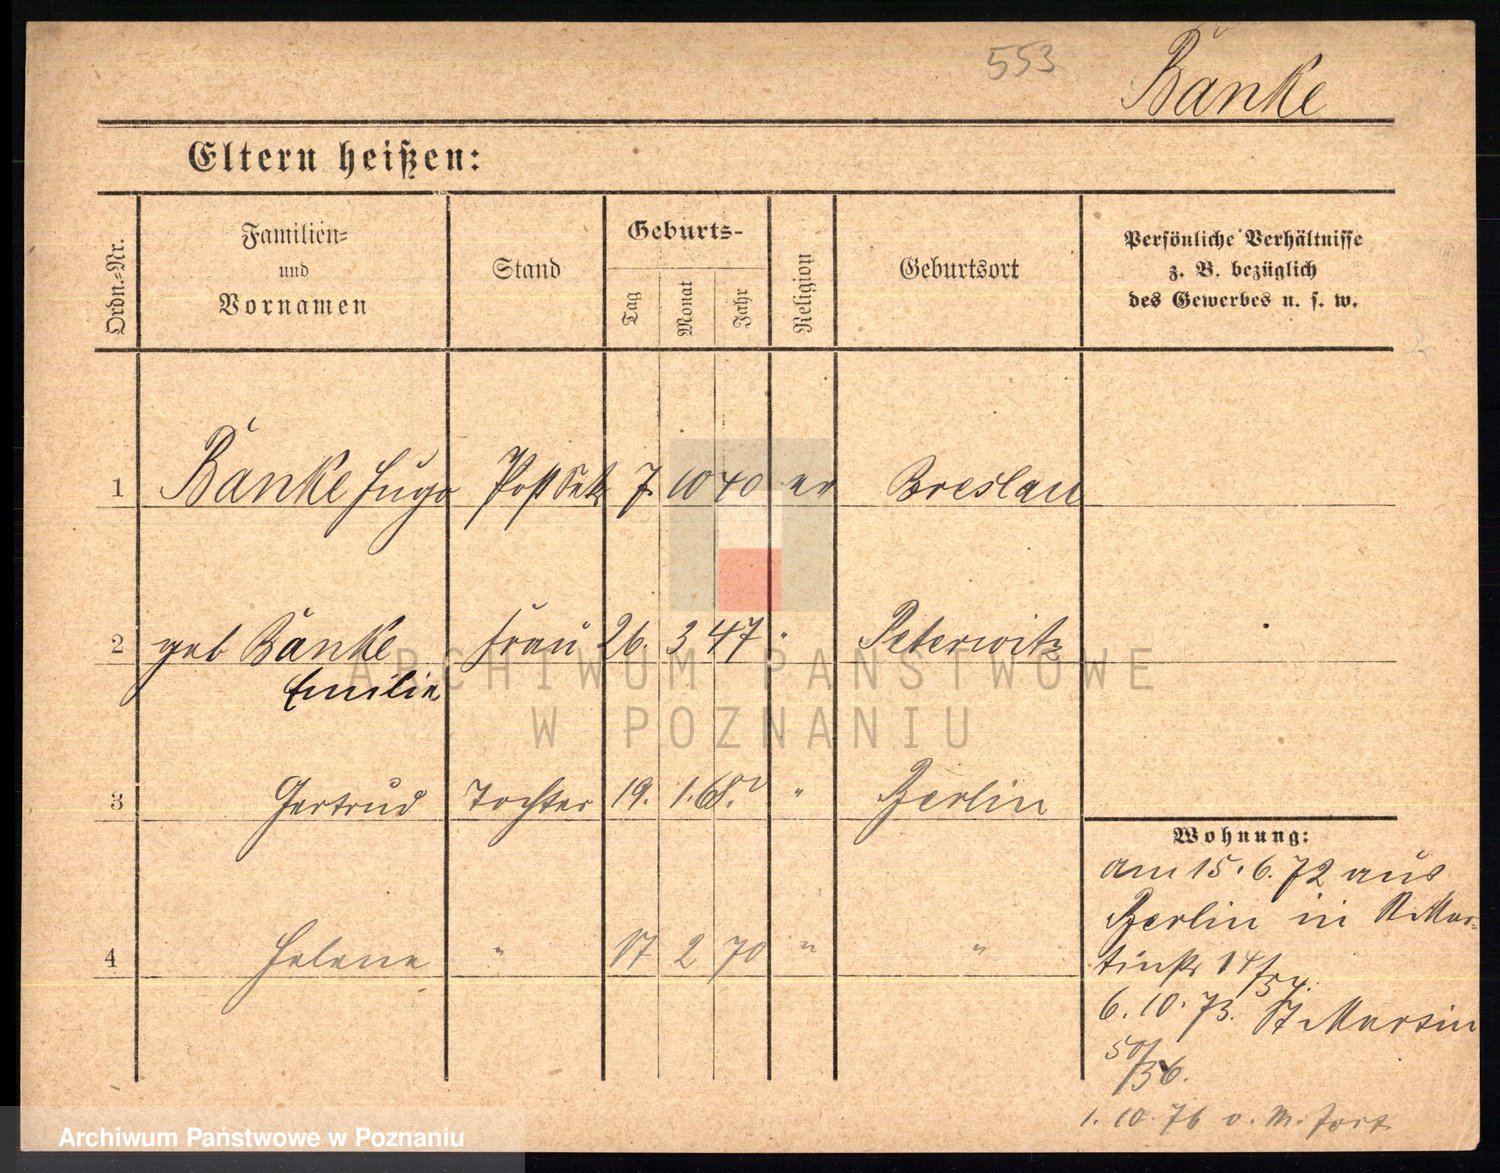 553 Bänke
Eltern heißen:
Ordn.-Nr.
Familien-
und
Vornamen
Stand
Geburts-
Tag Monat Jahr
Religion
Geburtsort
Persönliche Verhältnisse
z. B. bezüglich
des Gewerbes u. s. w.
1 Bänke Hugo Post Sekr 7. 10 40 ev Breslau
2 geb Bänke Frau 26. 3 47 " Peterwitz
Emilie
3 Gertrud Tochter 19. 1. 68. " Berlin
4 Helene " 2 70 " "
Wohnung:
am 15. 6. 72 aus
Berlin in St Mar-
tinstr 14/
6. 10. 73. St Martin
50/36.
1. 10. 76 v. M. fort
ARCHIWUM PAŃSTWOWE
W POZNANIU
Archiwum Państwowe w Poznaniu